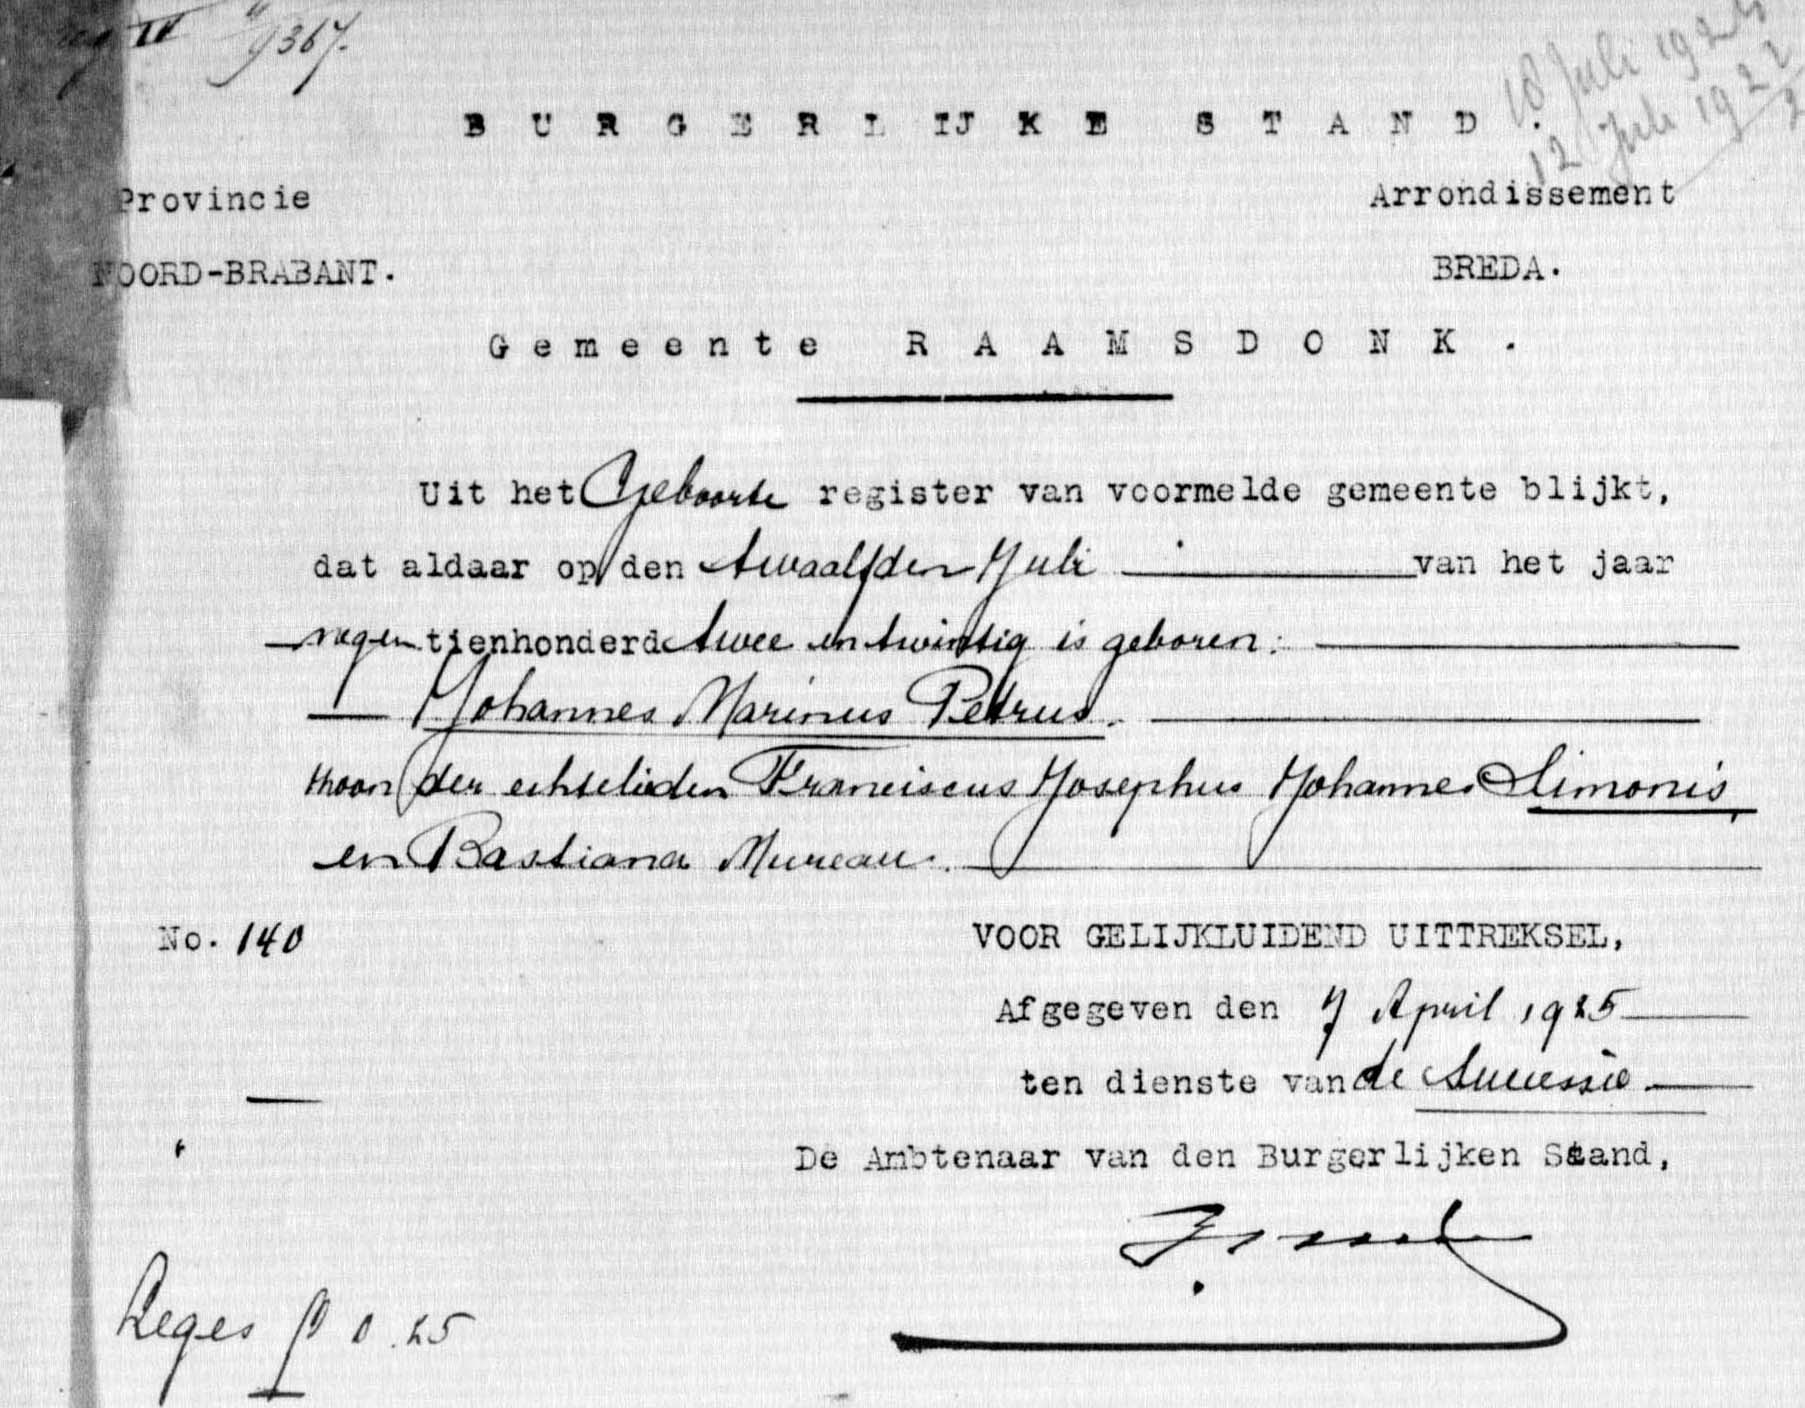 9367.
18 Juli 192
12 Juli 1922
BURGERLIJKE STAND.
Provincie Arrondissement
NOORD-BRABANT. BREDA.
Gemeente RAAMSDONK.
Uit het Geboorte register van voormelde gemeente blijkt,
dat aldaar op den twaalfden Juli van het jaar
negentienhonderd twee en twintig is geboren:
Johannes Marinus Petrus.
zoon der echtelieden Franciscus Josephus Johannes Simonis,
en Bastiana Mureau.
No. 140 VOOR GELIJKLUIDEND UITTREKSEL,
Afgegeven den 7 April 1925
ten dienste van de Successie
De Ambtenaar van den Burgerlijken Stand,
Leges f 0.25